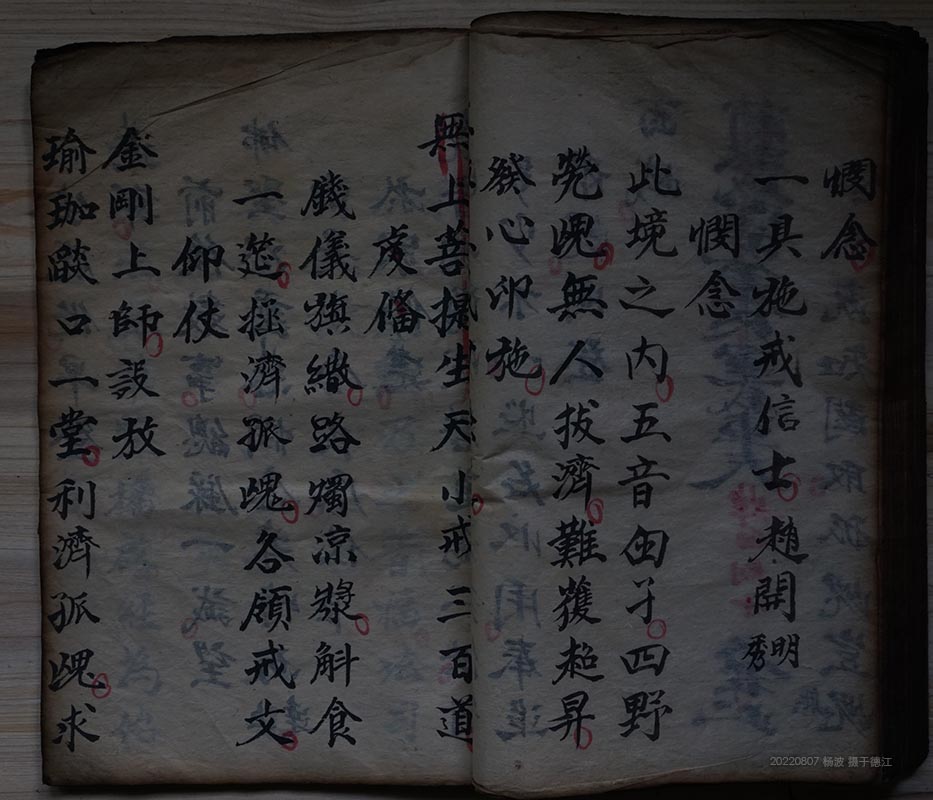 憫念
一具施戒信士趙開明秀
憫念
此境之内五音由子四野
煢魂無人拔濟難獲超昇
發心印施
無上菩提生天小戒三百道
虔俻
錢儀旗繖路燭凉漿斛食
一筵拯濟孤魂各領戒文
仰仗
金剛上師設放
瑜珈燄口一堂利濟孤魂求
20220807 杨波 摄于德江